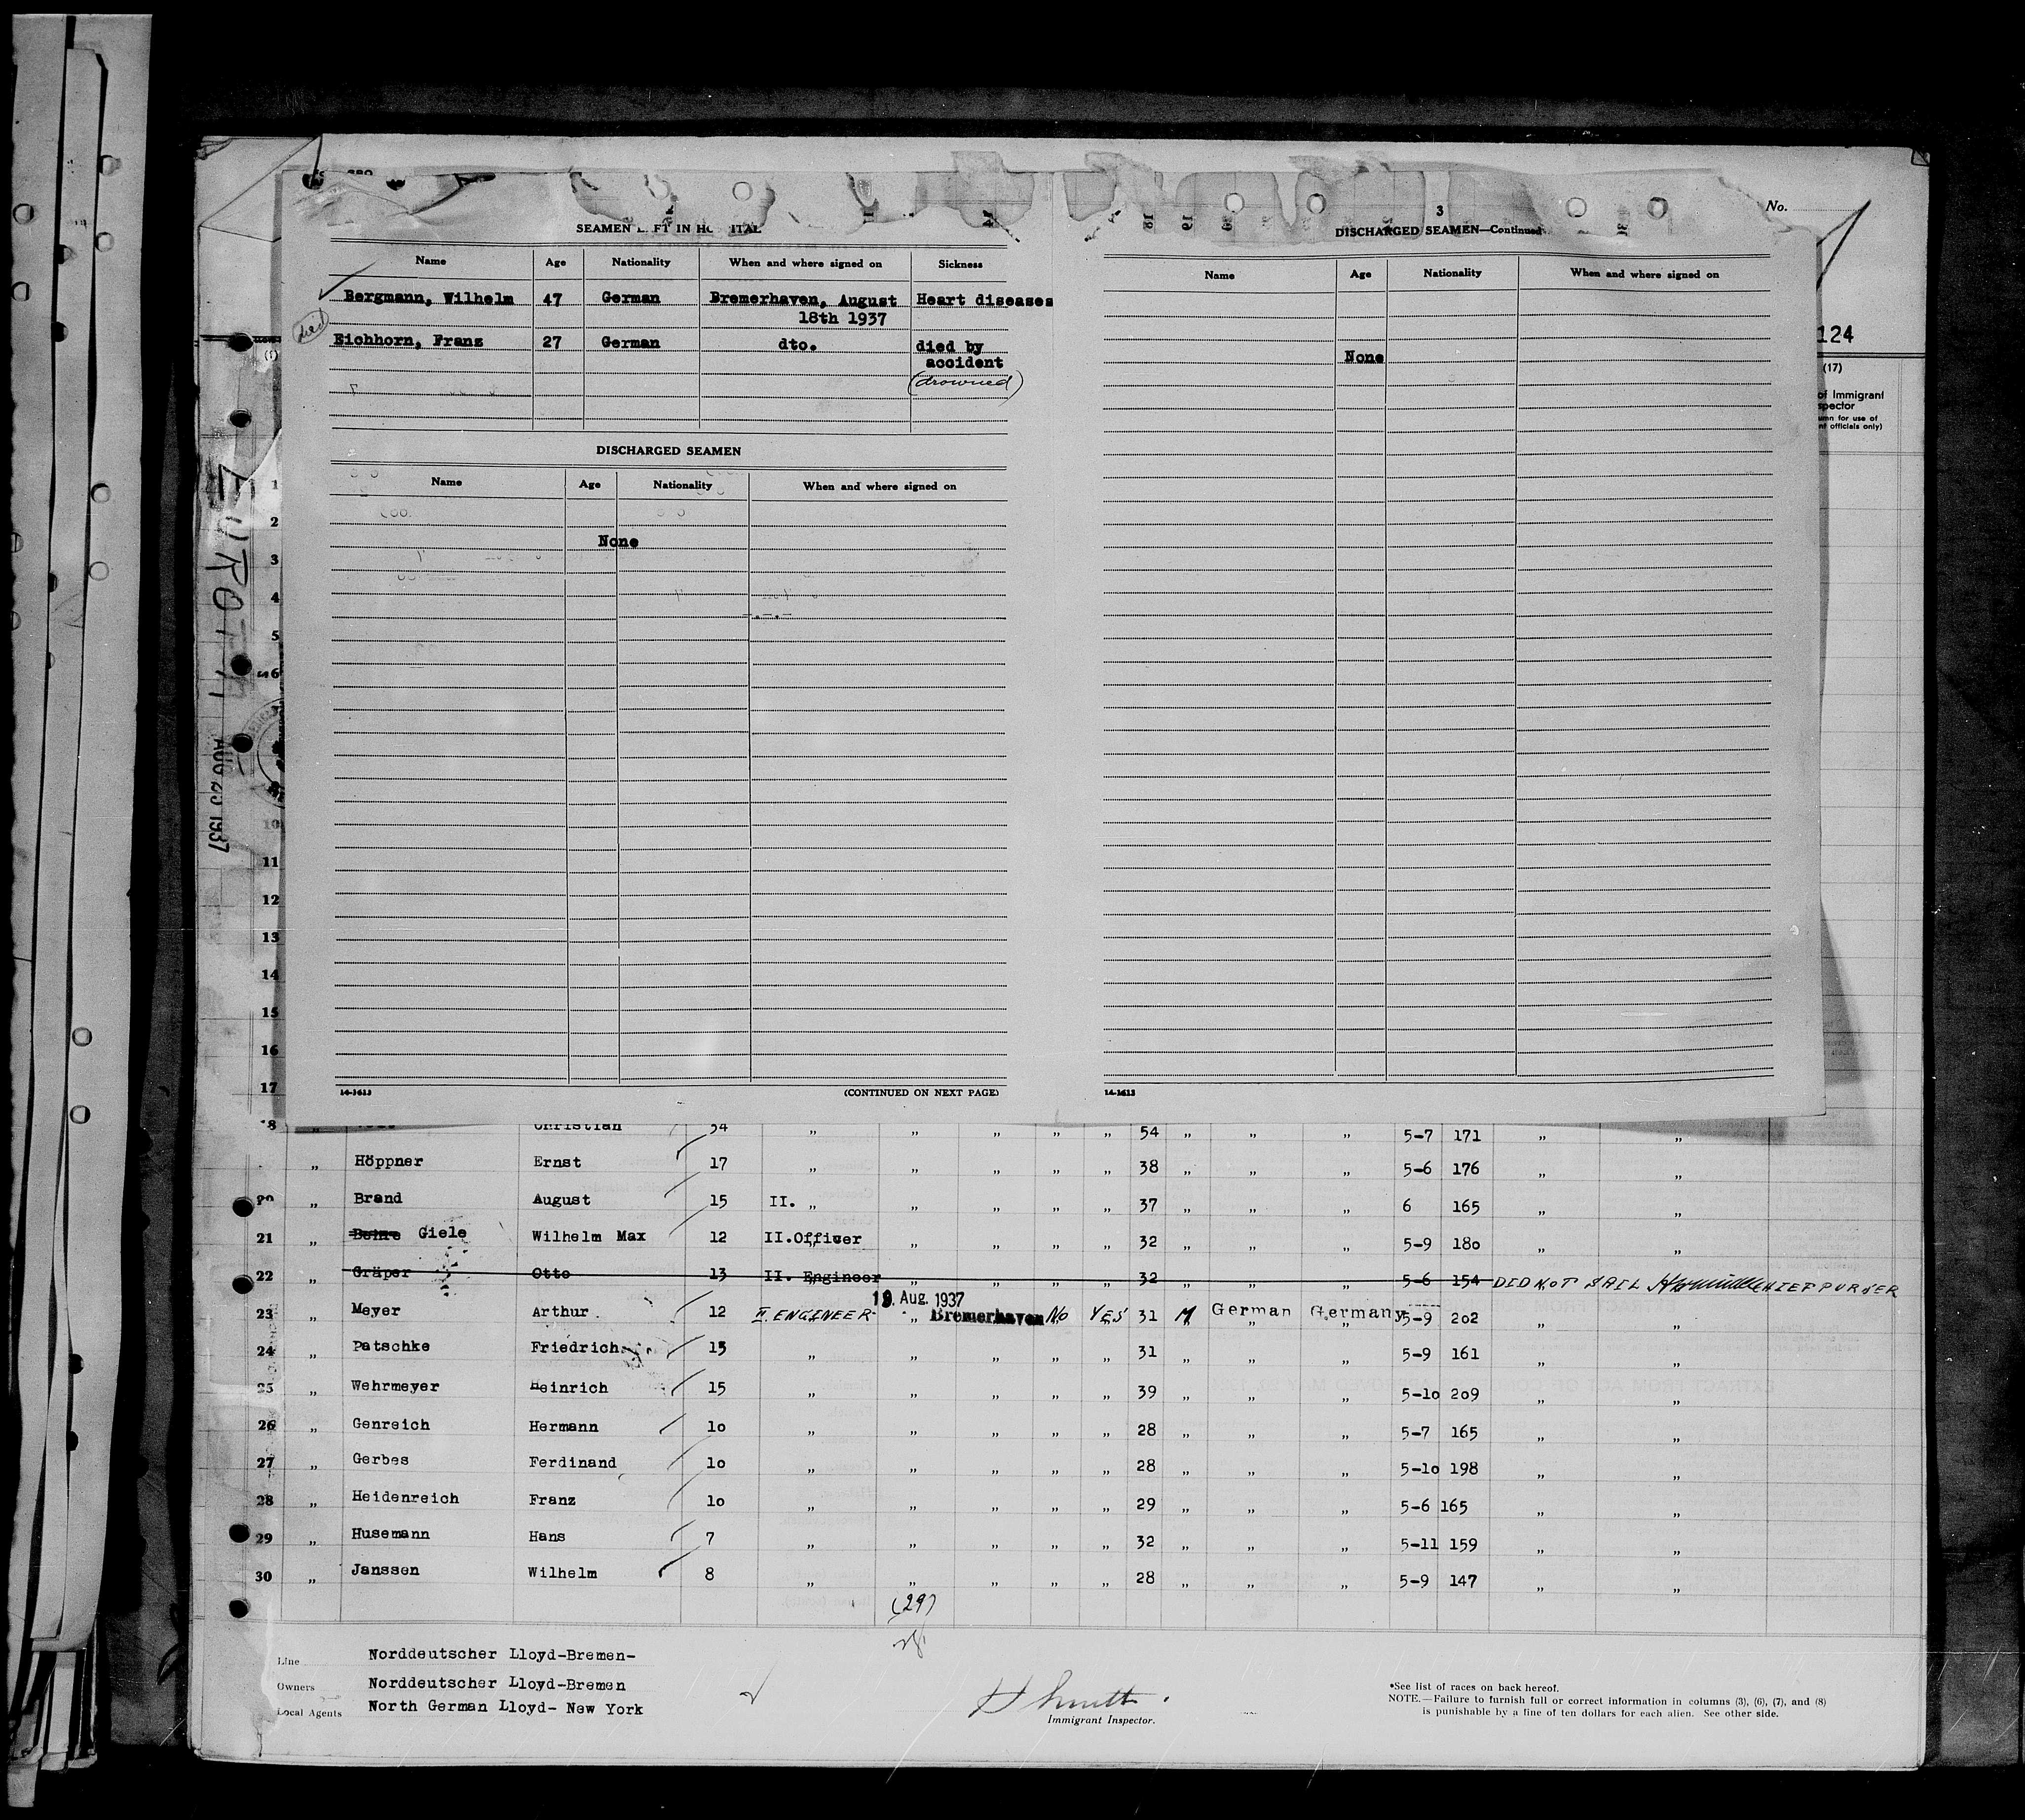 3
No.
SEAMEN L FT IN HO ITAL
Name Age Nationality When and where signed on Sickness
Bergmann, Wilhelm 47 German Bremerhaven, August Heart diseases
18th 1937
died
Eichhorn, Franz 27 German dto. died by
accident
(drowned)
DISCHARGED SEAMEN
Name Age Nationality When and where signed on
None
14-1613 (CONTINUED ON NEXT PAGE)
DISCHARGED SEAMEN—Continued
Name Age Nationality When and where signed on
None
14-1613
124
(17)
of Immigrant
spector
umn for use of
nt officials only)
EUROPA
AUG 25 1937
1
2
3
4
5
6
10
11
12
13
14
15
16
17
18 „ Christian 54 „ „ „ „ „ 54 „ „ „ 5-7 171 „ „
„ Höppner Ernst 17 „ „ „ „ „ 38 „ „ „ 5-6 176 „ „
20 „ Brand August 15 II. „ „ „ „ „ 37 „ „ „ 6 165 „ „
21 „ Behre Giele Wilhelm Max 12 II.Officer „ „ „ „ 32 „ „ „ 5-9 180 „ „
22 „ Gräper Otto 13 II. Engineer „ „ „ „ 32 „ „ „ 5-6 154 DID NOT SAIL CHIEF PURSER
19. Aug. 1937
23 „ Meyer Arthur 12 II. ENGINEER „ Bremerhaven No YES 31 M German Germany 5-9 202 „ „
24 „ Patschke Friedrich 15 „ „ „ „ „ 31 „ „ „ 5-9 161 „ „
25 „ Wehrmeyer Heinrich 15 „ „ „ „ „ 39 „ „ „ 5-10 209 „ „
26 „ Genreich Hermann 10 „ „ „ „ „ 28 „ „ „ 5-7 165 „ „
27 „ Gerbes Ferdinand 10 „ „ „ „ „ 28 „ „ „ 5-10 198 „ „
28 „ Heidenreich Franz 10 „ „ „ „ „ 29 „ „ „ 5-6 165 „ „
29 „ Husemann Hans 7 „ „ „ „ „ 32 „ „ „ 5-11 159 „ „
30 „ Janssen Wilhelm 8 „ „ „ „ „ 28 „ „ „ 5-9 147 „ „
(29)
Line Norddeutscher Lloyd-Bremen-
Owners Norddeutscher Lloyd-Bremen
Local Agents North German Lloyd- New York
Immigrant Inspector.
*See list of races on back hereof.
NOTE.—Failure to furnish full or correct information in columns (3), (6), (7), and (8)
is punishable by a fine of ten dollars for each alien. See other side.